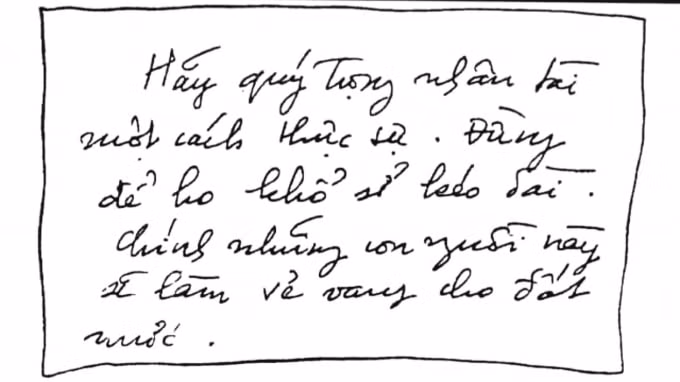 Hãy quý trọng nhân tài
một cách thực sự. Đừng
để họ khổ sở kéo dài.
Chính những con người này
sẽ làm vẻ vang cho đất
nước.